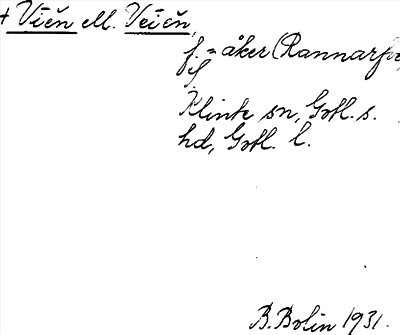 + Vičn ell. Veičn,
f. = åker (Rannarfve
Klinte sn, Gotl. s.
hd, Gotl. l.
B. Bolin 1931.